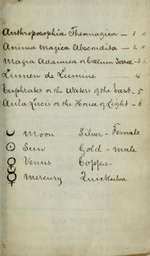 Anthroposophia Theomagica — 1
Anima Magica Abscondita — 2
Magia Adamica or Coelum Terrae — 3
Lumen de Lumine — 4
Euphrates or the Waters of the East. 5
Aula Lucis or the House of Light - 6
☾ Moon Silver - Female
☉ Sun Gold - male
♀ Venus Copper
☿ Mercury Quicksilver